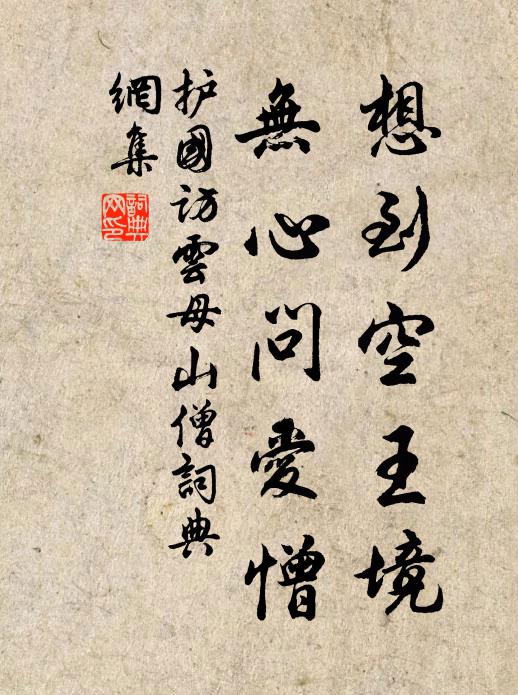 想到空王境
無心問愛憎
护國訪雲母山僧詞典
網集
詞典
网印